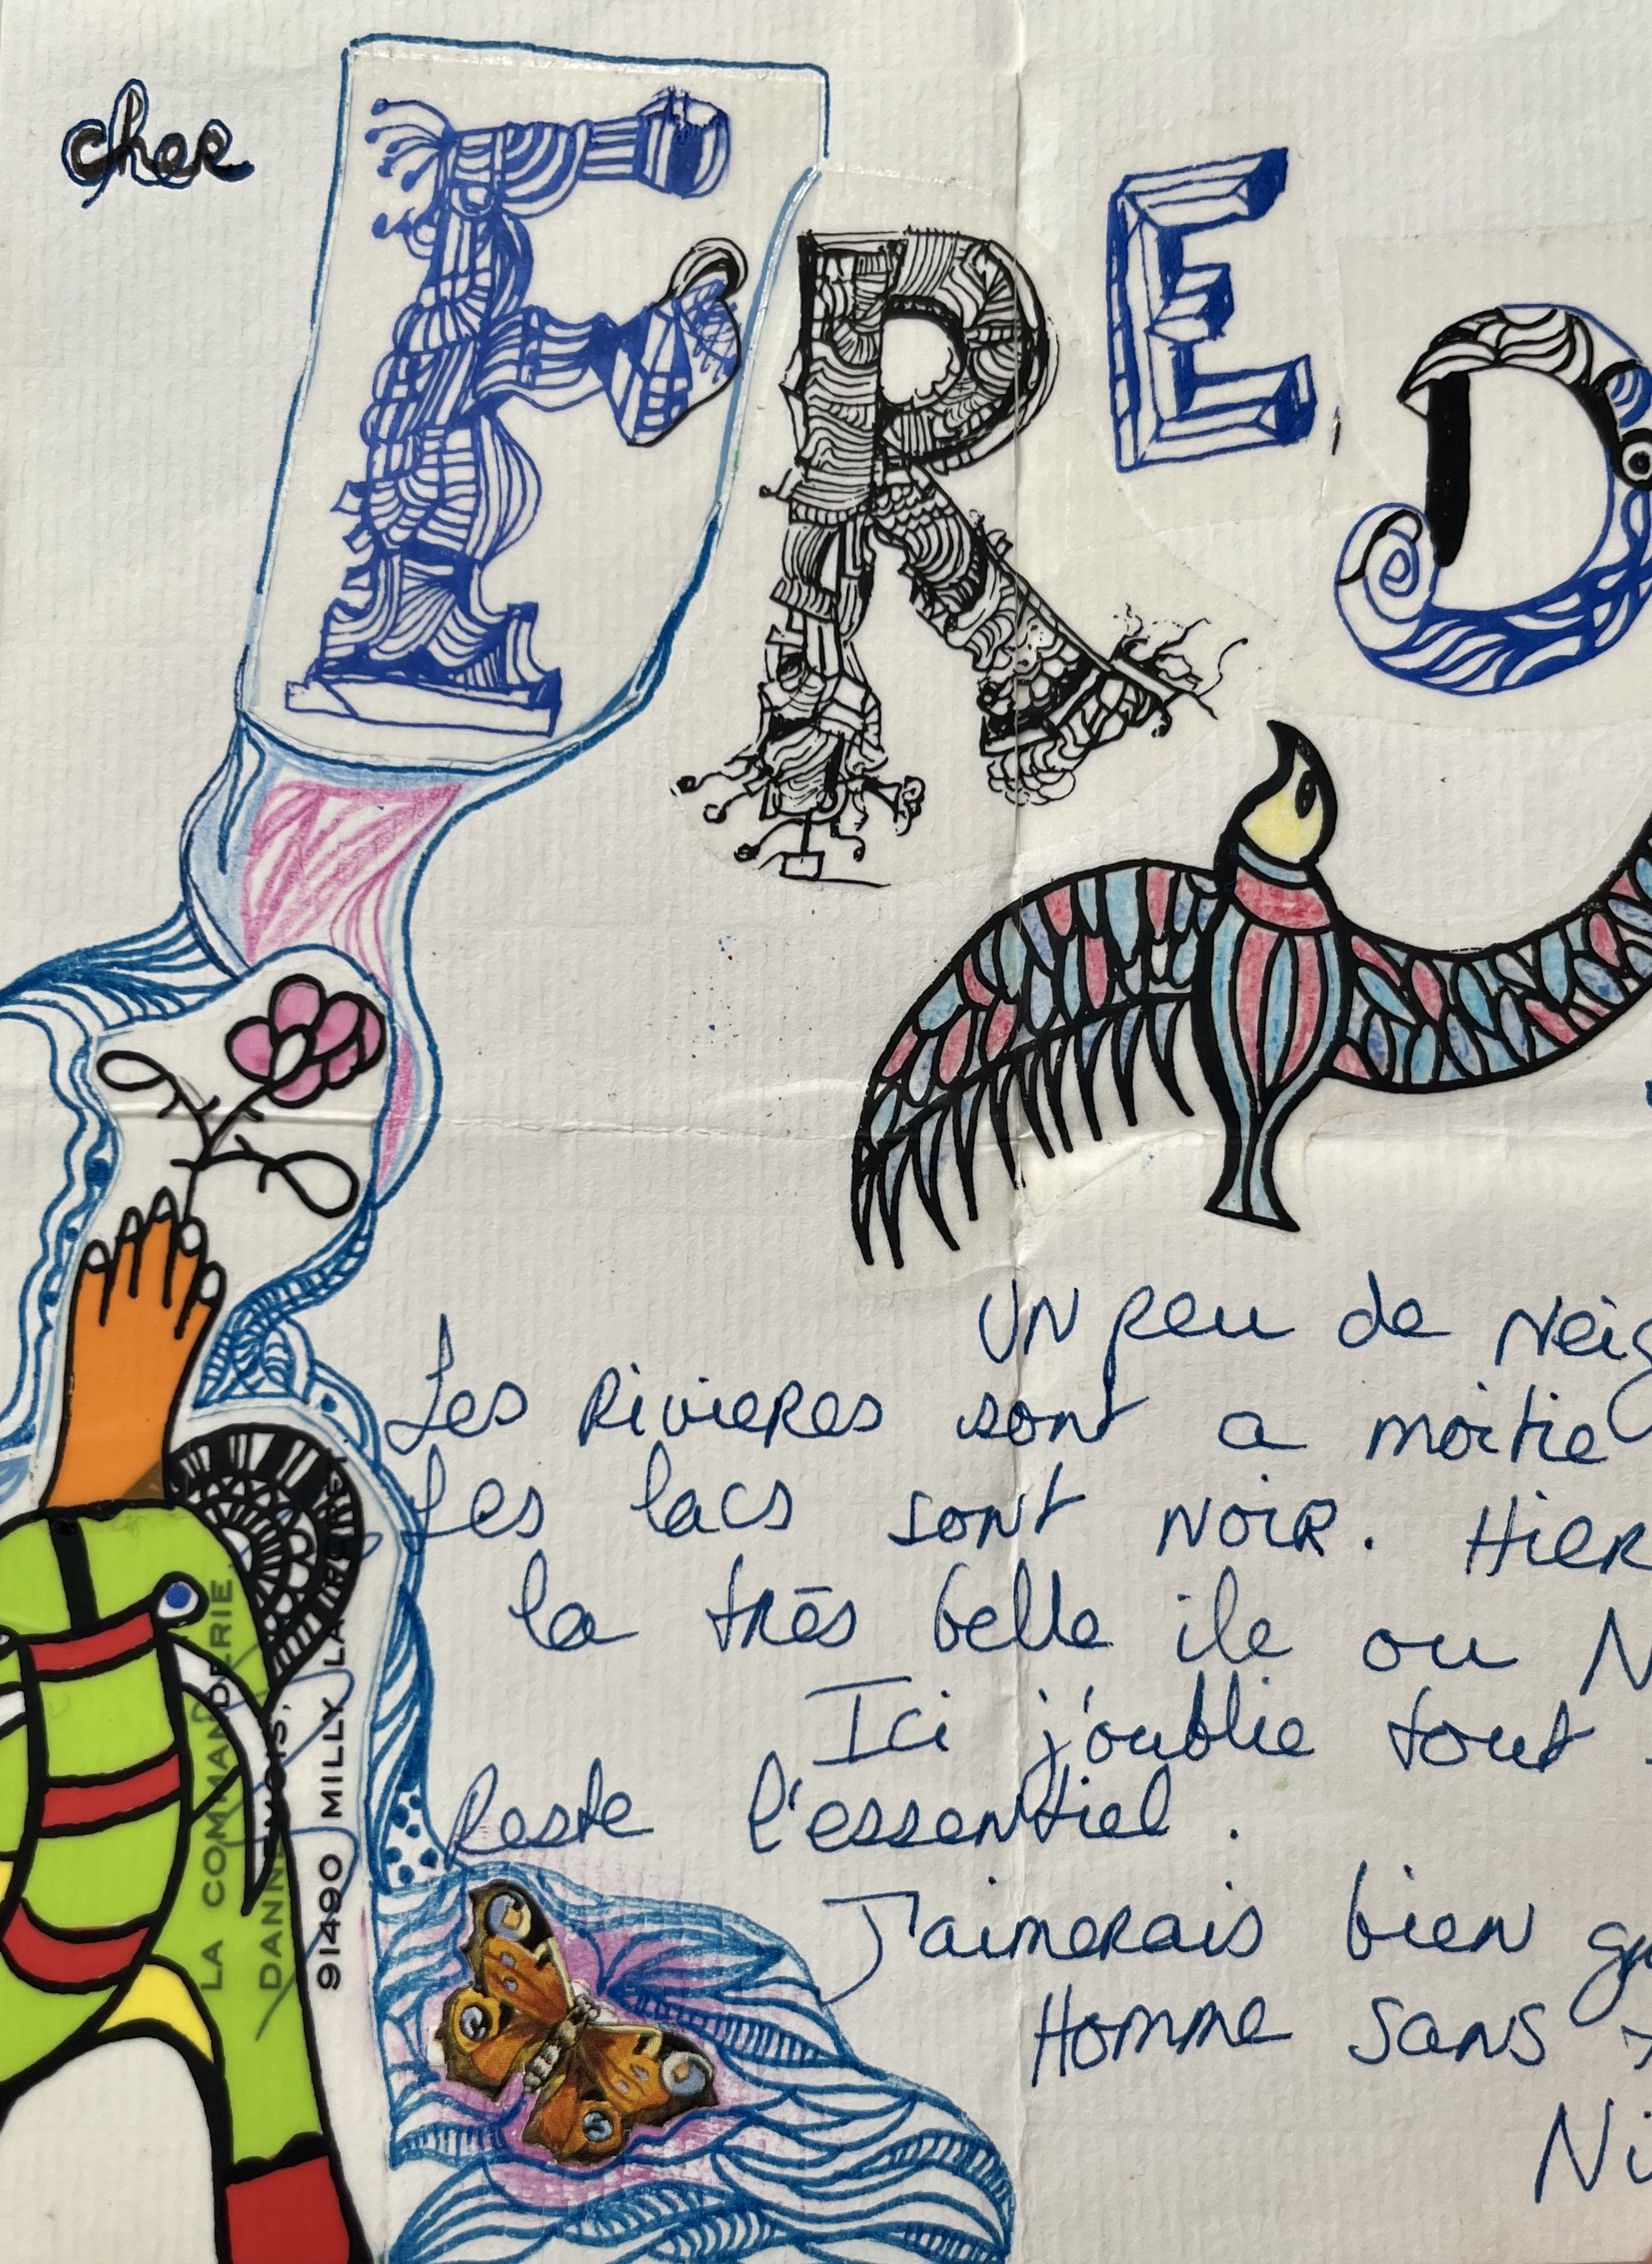 cher
FRED
Un peu de Neig
Les Rivieres sont a moitie
Les lacs sont noir. Hier
la très belle ile ou N
Ici j'oublie tout.
Reste l'essentiel.
J'aimerais bien
Homme sans
Ni
LA COMMANDERIE,
DANNEMOIS,
91490 MILLY LA